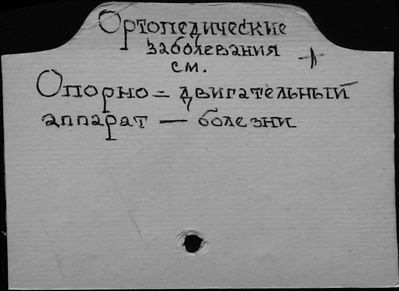 Ортопедические
заболевания
см.
Опорно = двигательный
аппарат — болезни